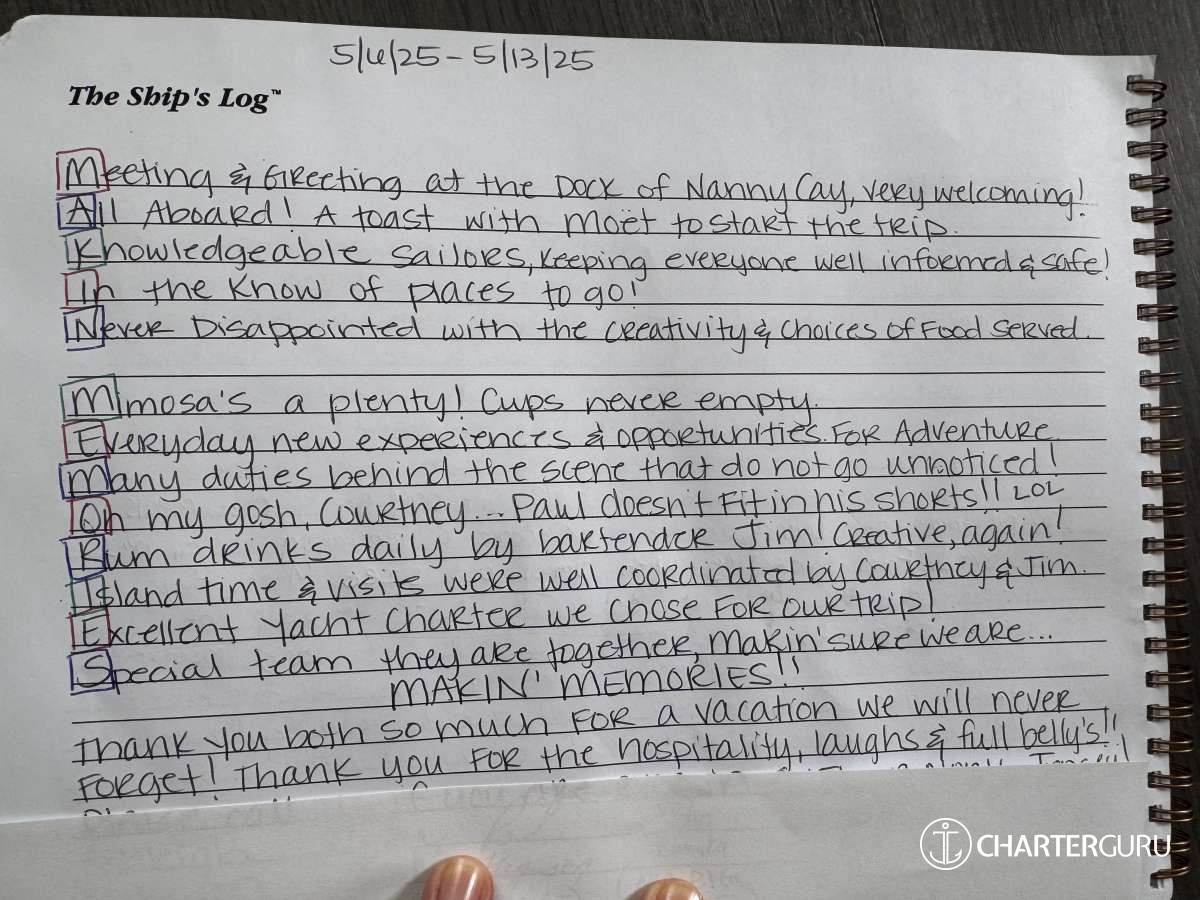 5/6/25 - 5/13/25
The Ship's Log™
Meeting & Greeting at the Dock of Nanny Cay, very welcoming!
All Aboard! A toast with Moët to start the trip.
Knowledgeable sailors, keeping everyone well informed & safe!
In the Know of places to go!
Never Disappointed with the creativity & choices of Food served.
Mimosa's a plenty! Cups never empty.
Everyday new experiences & opportunities For Adventure
Many duties behind the scene that do not go unnoticed!
Oh my gosh, Courtney... Paul doesn't Fit in his shorts!! LOL
Rum drinks daily by bartender Jim! Creative, again!
Island time & visits were well coordinated by Courtney & Jim.
Excellent Yacht Charter we chose For our trip!
Special team they are together, makin' sure we are...
MAKIN' MEMORIES!!
Thank you both so much For a vacation we will never
Forget! Thank you For the hospitality, laughs & full belly's!!
CHARTERGURU